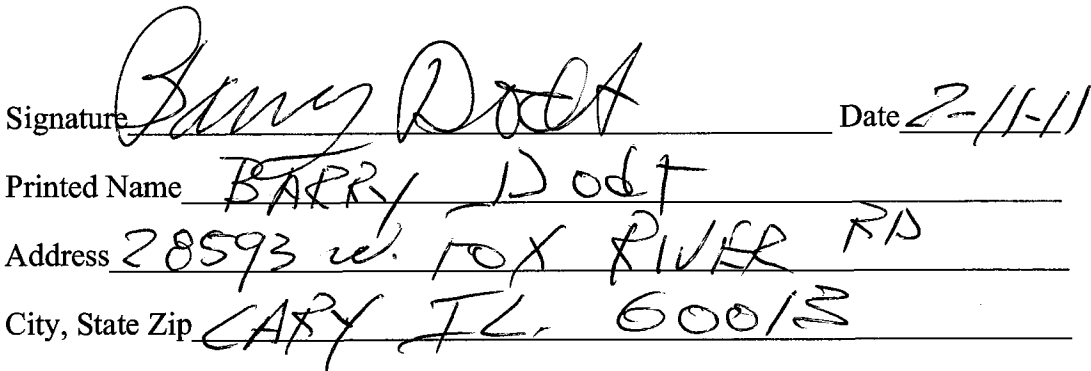 Signature Barry Dodt Date 2-11-11
Printed Name BARRY Dodt
Address 28593 w. FOX RIVER RD
City, State Zip CARY IL. 60013